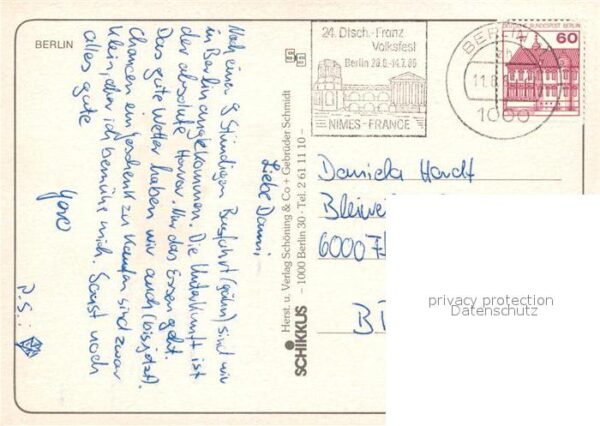 BERLIN
Liebe Danni,
Nach einer 9 Stündigen Busfahrt (gähn) sind wir
in Berlin angekommen. Die Unterkunft ist
der absolute Horror. Nur das Essen geht.
Das gute Wetter haben wir auch (bis jetzt).
Chancen ein Geschenk zu kaufen sind zwar
klein, aber ich bemühe mich. Sonst noch
alles gute
P.S.:
SCHIKKUS
Herst. u. Verlag Schöning & Co + Gebrüder Schmidt
– 1000 Berlin 30 · Tel. 2 61 11 10 –
24. Dtsch.-Franz.
Volksfest
Berlin
NIMES-FRANCE
BERLIN
1000
DEUTSCHE BUNDESPOST BERLIN
60
Daniela Hardt
6000
privacy protection
Datenschutz